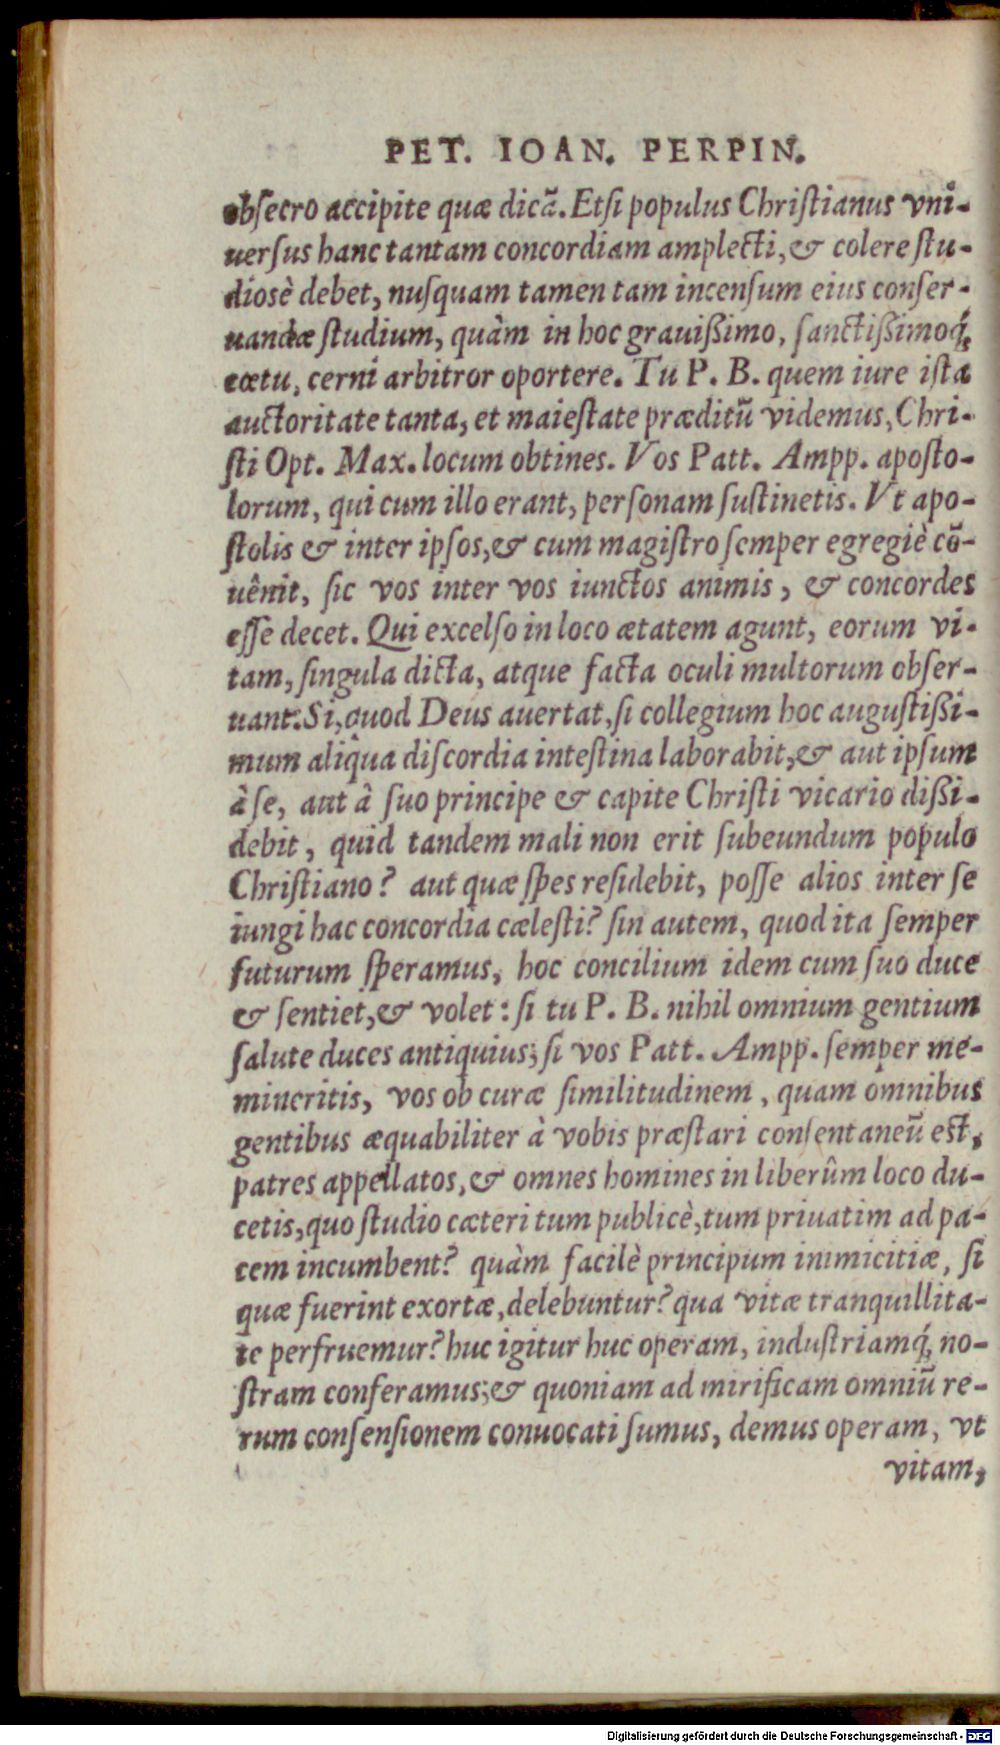 PET. IOAN. PERPIN.
obſecro accipite quæ dicā. Etſi populus Chriſtianus vni-
uerſus hanc tantam concordiam amplecti, & colere ſtu-
dioſè debet, nuſquam tamen tam incenſum eius conſer-
uandæ ſtudium, quàm in hoc grauißimo, ſanctißimoq́;
cœtu, cerni arbitror oportere. Tu P. B. quem iure iſta
auctoritate tanta, et maieſtate præditū videmus, Chri-
ſti Opt. Max. locum obtines. Vos Patt. Ampp. apoſto-
lorum, qui cum illo erant, perſonam ſuſtinetis. Vt apo-
ſtolis & inter ipſos, & cum magiſtro ſemper egregiè cō-
uênit, ſic vos inter vos iunctos animis, & concordes
eſſe decet. Qui excelſo in loco ætatem agunt, eorum vi-
tam, ſingula dicta, atque facta oculi multorum obſer-
uant. Si, quod Deus auertat, ſi collegium hoc auguſtißi-
mum aliqua diſcordia inteſtina laborabit, & aut ipſum
à ſe, aut à ſuo principe & capite Chriſti vicario dißi-
debit, quid tandem mali non erit ſubeundum populo
Chriſtiano? aut quæ ſpes reſidebit, poſſe alios inter ſe
iungi hac concordia cæleſti? ſin autem, quod ita ſemper
futurum ſperamus, hoc concilium idem cum ſuo duce
& ſentiet, & volet: ſi tu P. B. nihil omnium gentium
ſalute duces antiquius; ſi vos Patt. Ampp. ſemper me-
mineritis, vos ob curæ ſimilitudinem, quam omnibus
gentibus æquabiliter à vobis præſtari conſentaneū eſt,
patres appellatos, & omnes homines in liberûm loco du-
cetis, quo ſtudio cæteri tum publicè, tum priuatim ad pa-
cem incumbent? quàm facilè principum inimicitiæ, ſi
quæ fuerint exortæ, delebuntur? qua vitæ tranquillita-
te perfruemur? huc igitur huc operam, induſtriamq́; no-
ſtram conferamus; & quoniam ad mirificam omniū re-
rum conſenſionem conuocati ſumus, demus operam, vt
vitam,
Digitalisierung gefördert durch die Deutsche Forschungsgemeinschaft - DFG